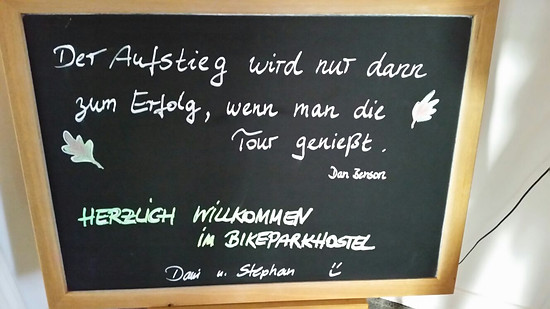 Der Aufstieg wird nur dann
zum Erfolg, wenn man die
Tour genießt.
Dan Benson
HERZLICH WILLKOMMEN
im BIKEPARKHOSTEL
Dani u. Stephan